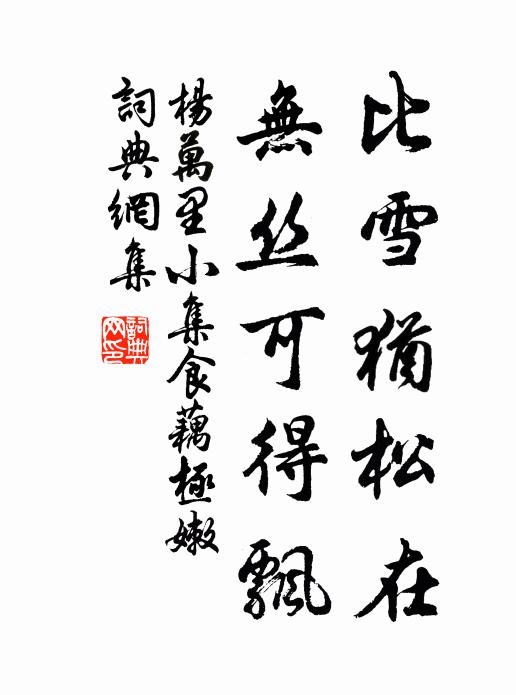 比雪猶松在
無丝可得飄
楊萬里小集食藕極嫩
詞典網集
詞典网印